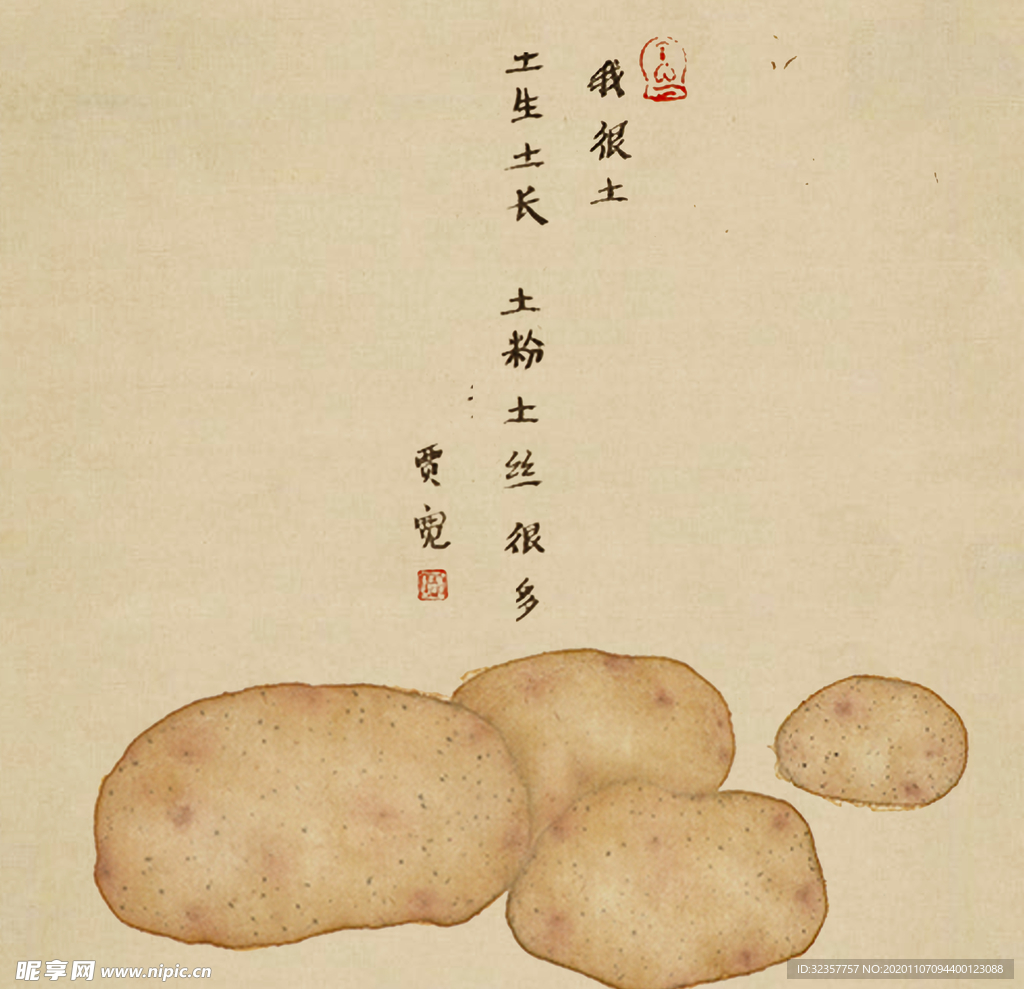 我很土
土生土长 土粉土丝很多
贾宽
昵享网 www.nipic.cn
ID:32357757 NO:20201107094400123088